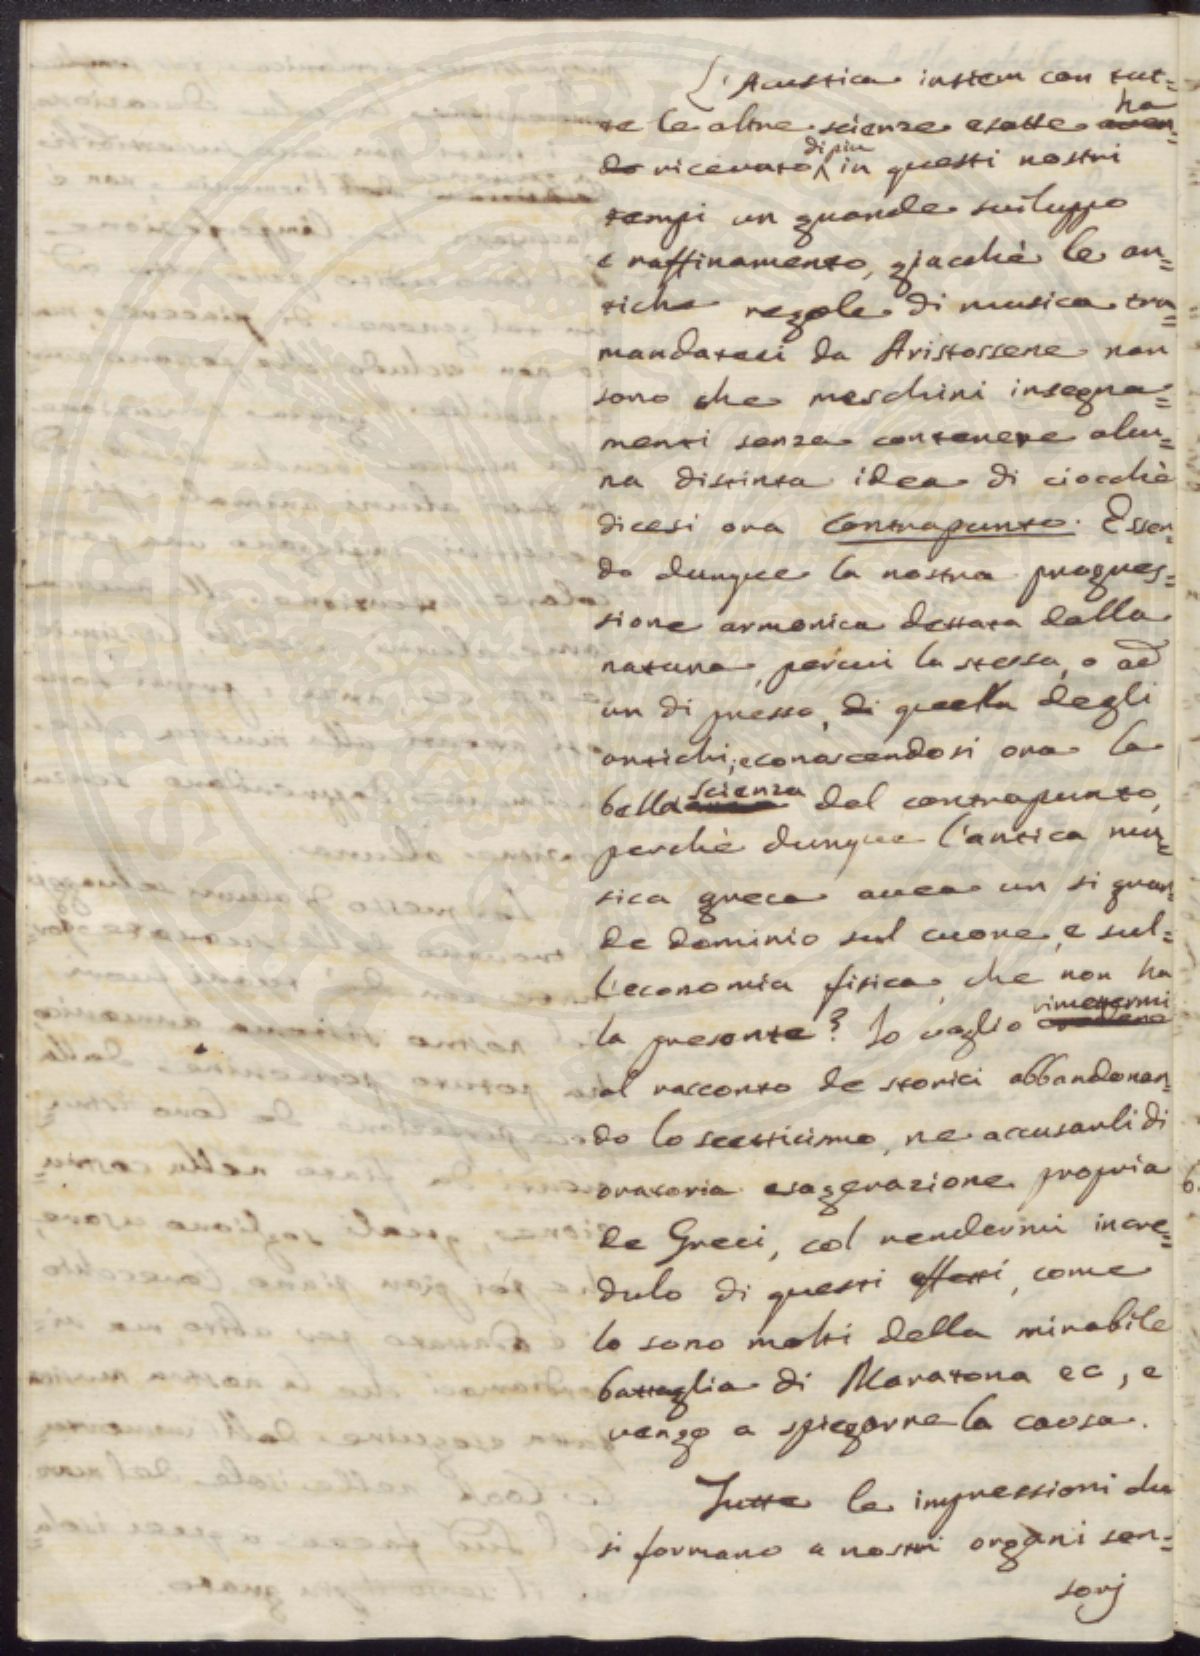 L'Acustica insiem con tut=
te le altre scienze esatte ha
ricevuto di piu in questi nostri
tempi un grande sviluppo
e raffinamento, giacchè le an=
tiche regole di musica tra=
mandateci da Aristossene non
sono che meschini insegna=
menti senza contenere alcu=
na distinta idea di ciocchè
dicesi ora Contrapunto. Essen=
do dunque la nostra progres=
sione armonica dettata dalla
natura, percui la stessa, o ad
un di presso, di quella degli
antichi; e conascendosi ora la
bella scienza del contrapunto,
perchè dunque l'antica mu=
sica greca avea un si gran=
de dominio sul cuore, e sul=
l'economia fisica, che non ha
la presente? Io voglio rimettermi
al racconto de storici abbandonan=
do lo scetticismo, ne accusarli di
oratoria esagerazione propria
de Greci, col rendermi incre=
dulo di questi effetti, come
lo sono molti della mirabile
battaglia di Maratona ec, e
vengo a spiegarne la causa.
Tutte le impressioni che
si formano a nostri organi sen=
sorj